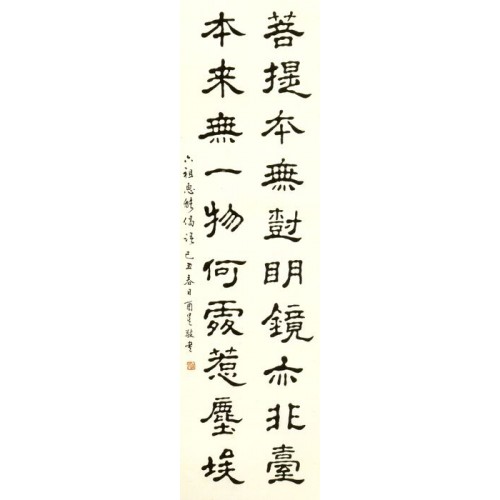 菩提本無樹明鏡亦非臺
本来無一物何處惹塵埃
六祖惠能偈語 己丑春日酉星敬書